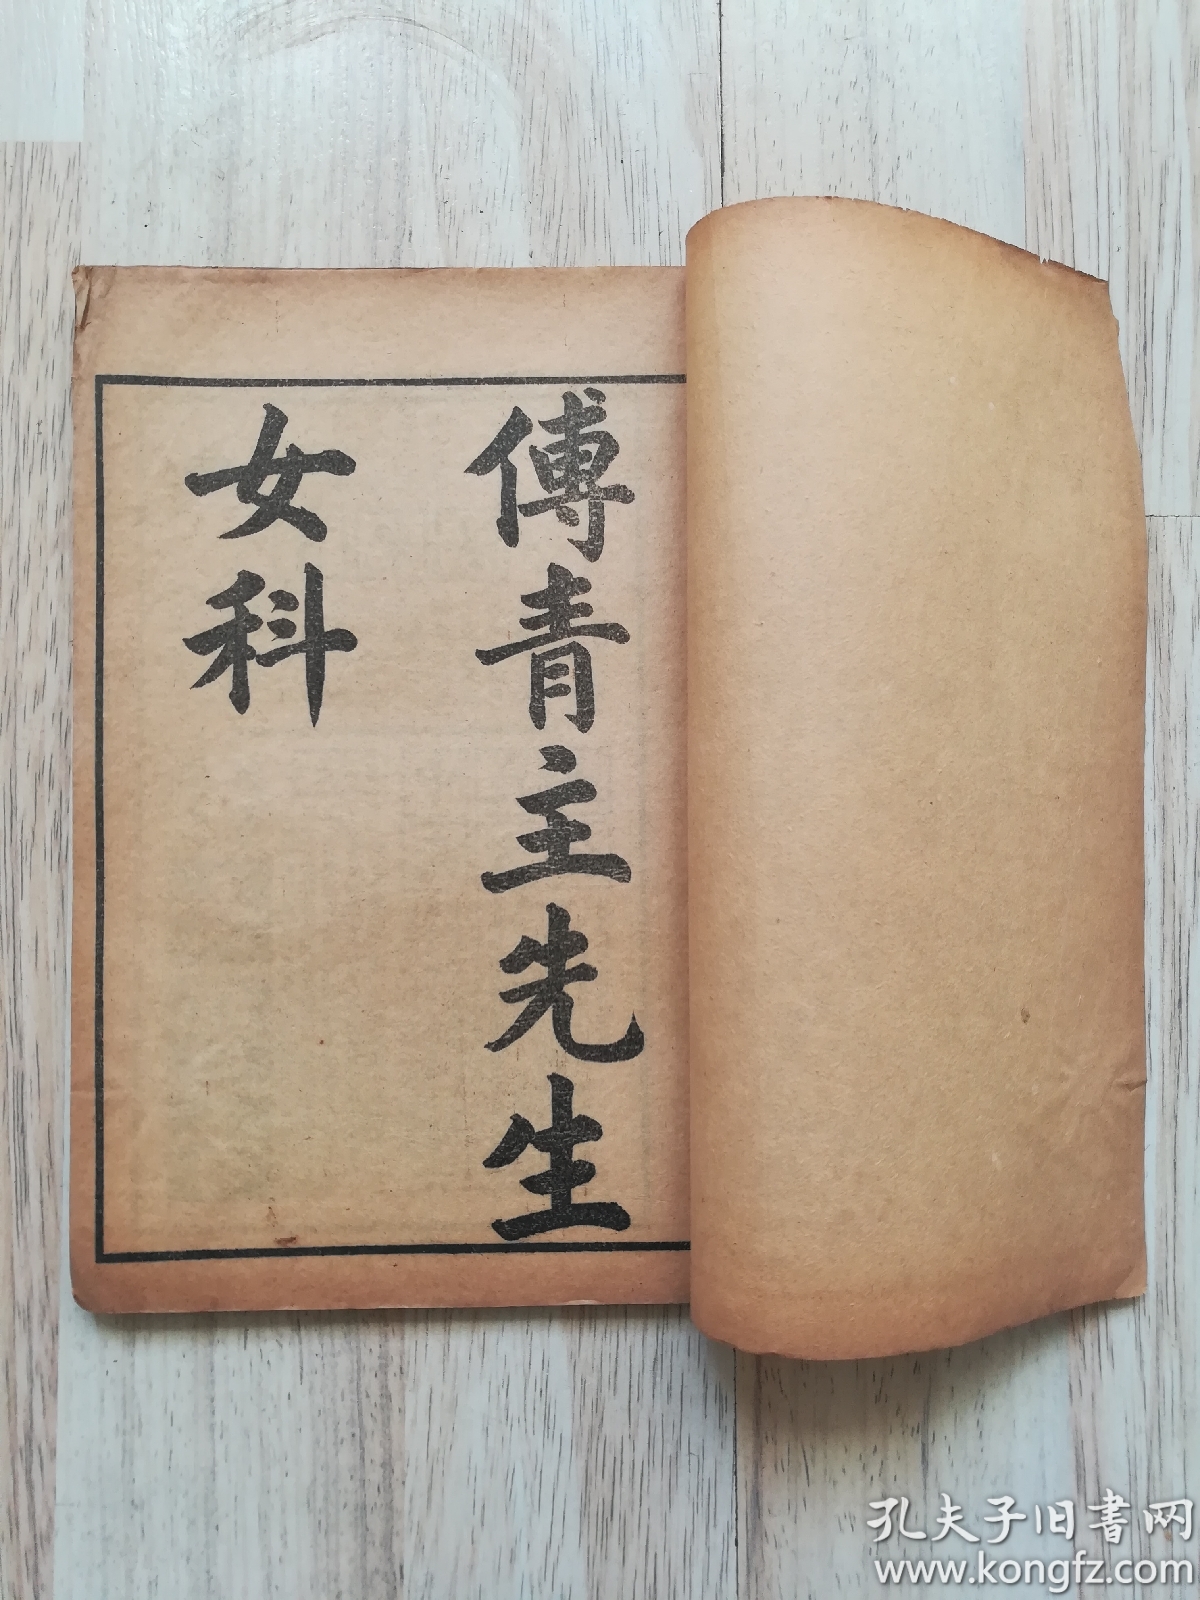 傅青主先生
女科
孔夫子旧書网
www.kongfz.com